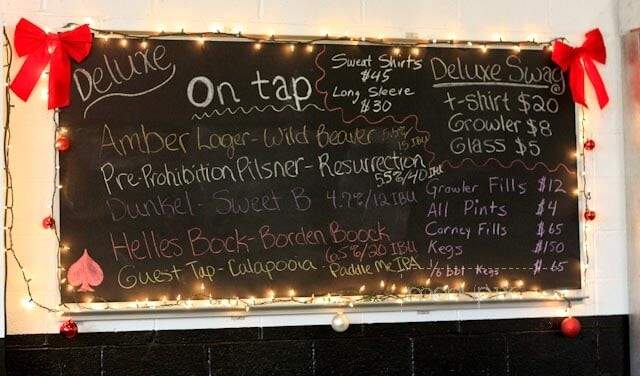 Deluxe
On tap
Amber Lager - Wild Beaver 5.5% 15 IBU
Pre-Prohibition Pilsner - Resurrection 5.5%/40 IBU
Dunkel - Sweet B 4.7%/12 IBU
Helles Bock - Borden Boock 6.5%/20 IBU
Guest Tap - Calapooia - Paddle Me IPA
Sweat Shirts
$45
Long Sleeve
$30
Deluxe Swag
t-shirt $20
Growler $8
Glass $5
Growler Fills $12
All Pints $4
Corney Fills $65
Kegs $150
1/6 bbl - Kegs $65